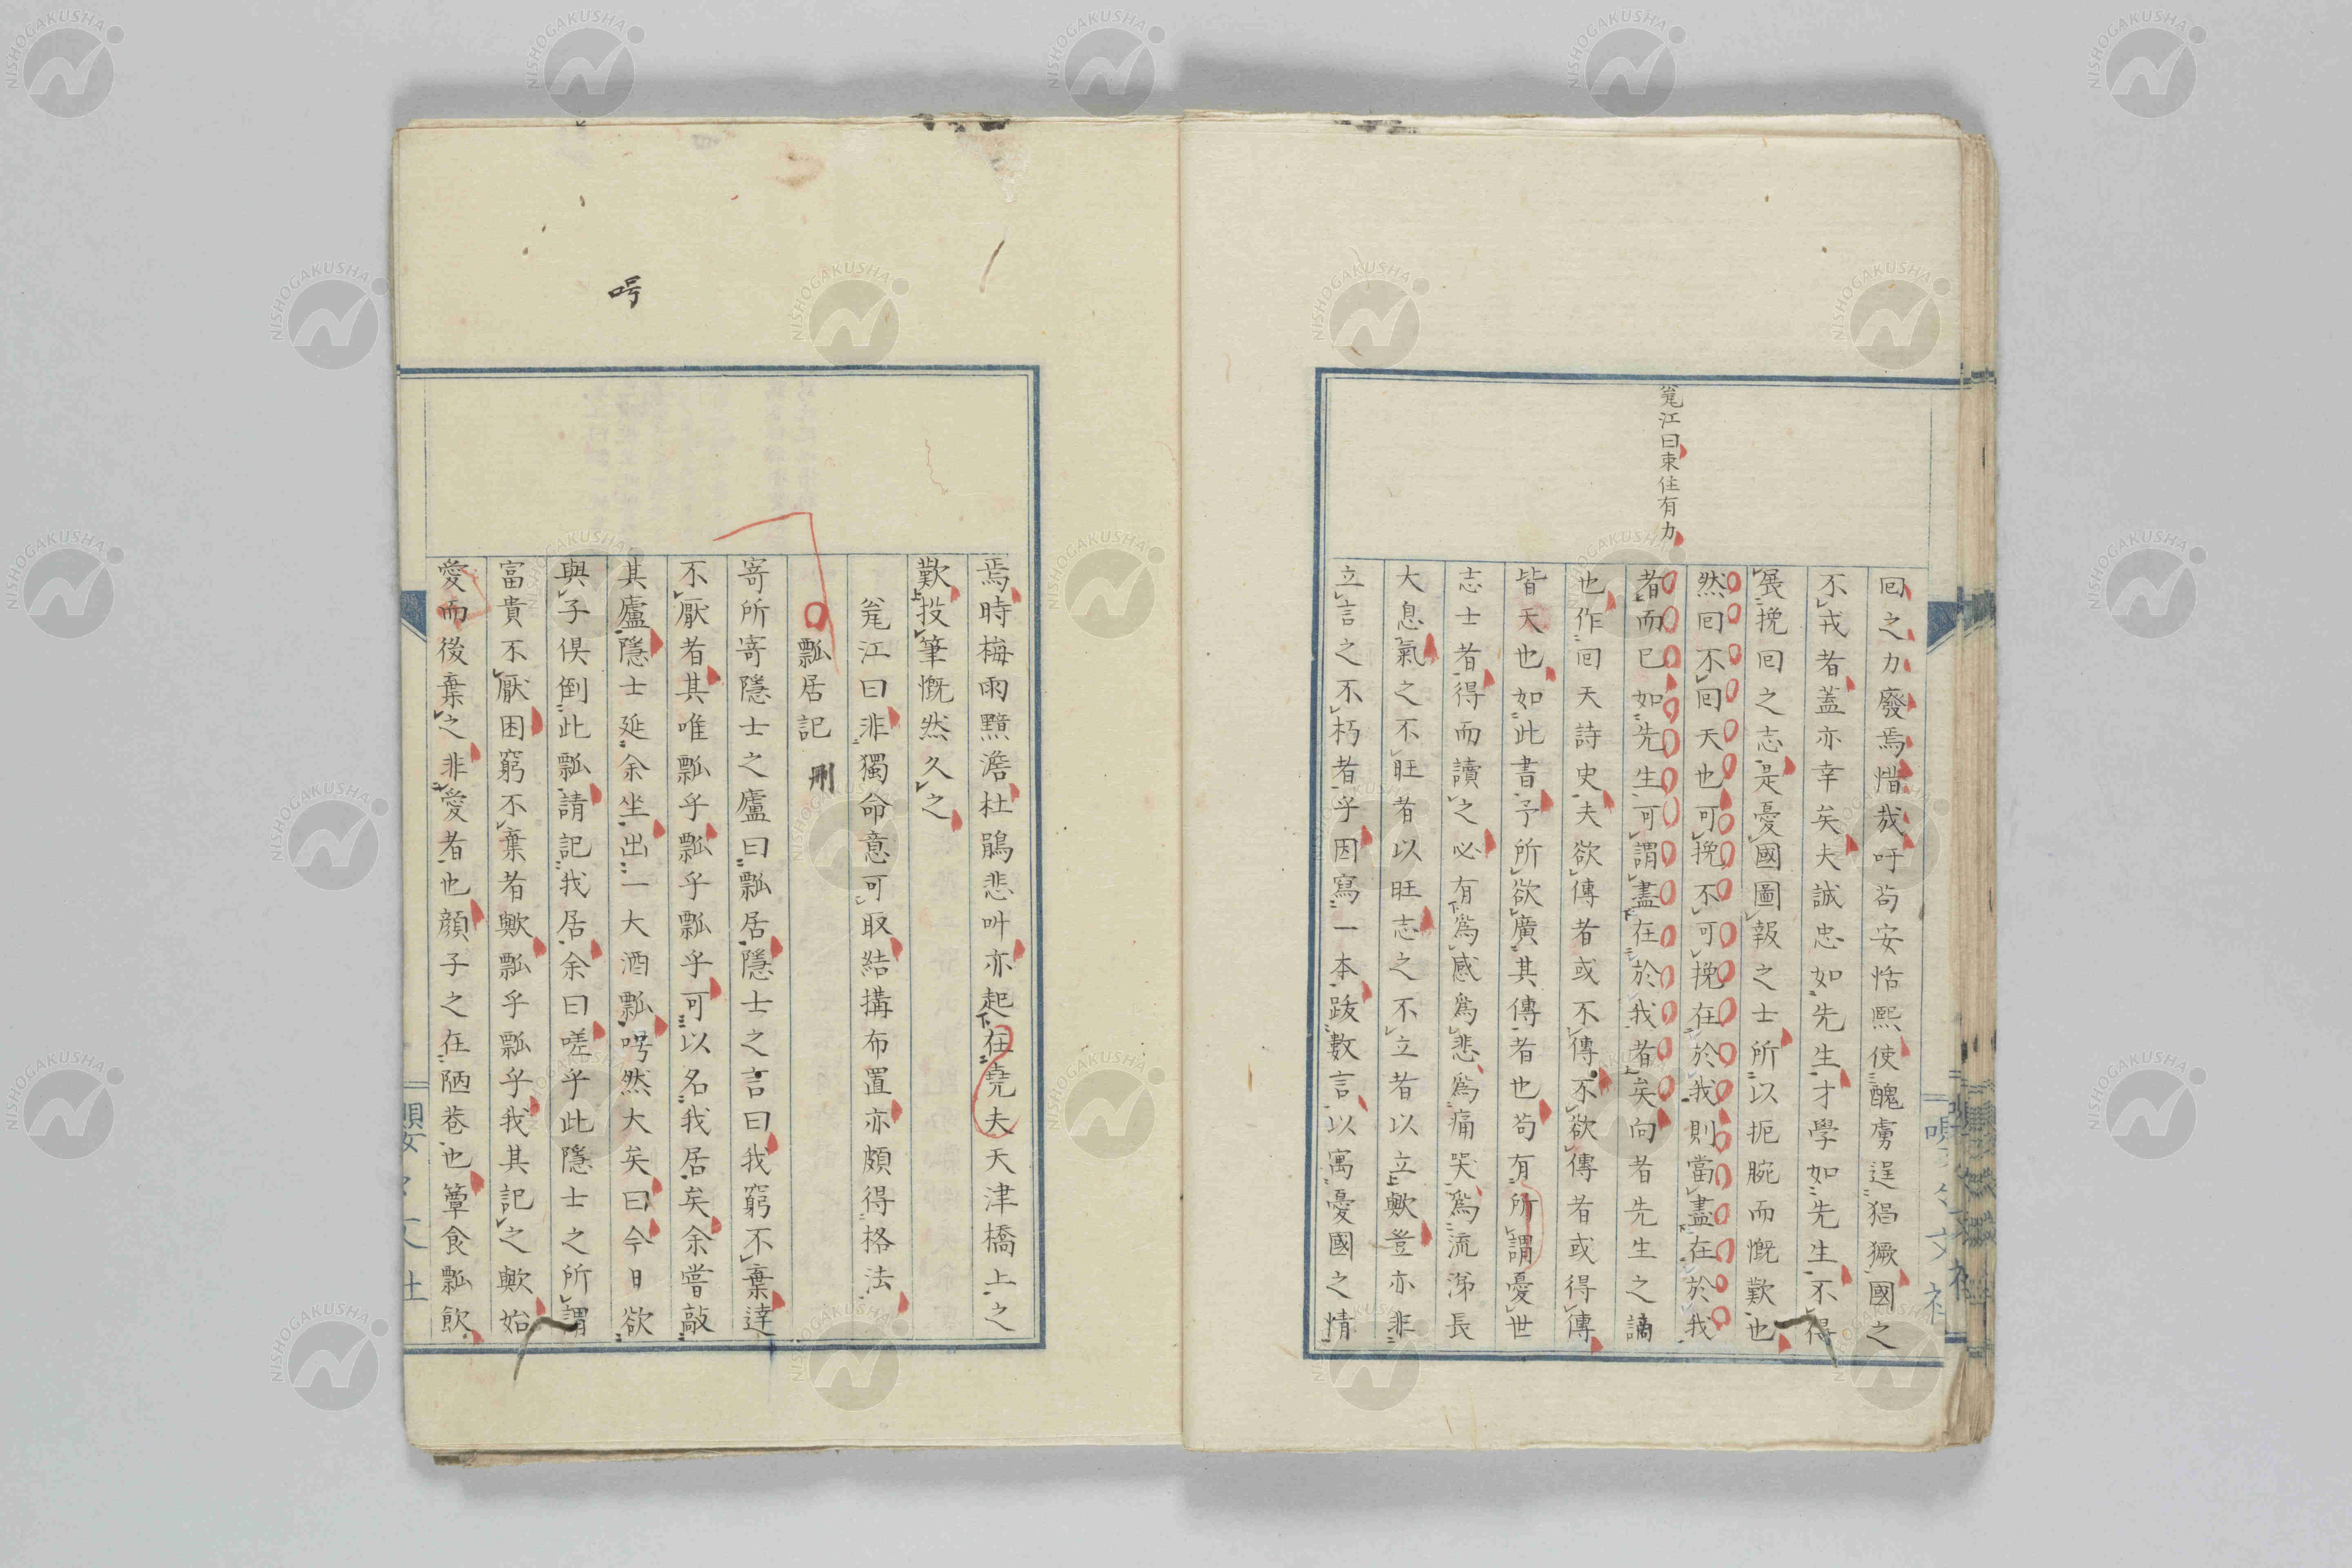 毻江曰束住有力
回之力廢焉惜哉吁苟安恬熙使醜虜逞猖獗國之
不戎者蓋亦幸矣夫誠忠如先生才學如先生不得
展挽回之志是憂國圖報之士所以扼腕而慨歎也
然回不回天也可挽不可挽在於我則當盡在於我
者而已如先生可謂盡在於我者矣向者先生之謫
也作回天詩史夫欲傳者或不傳不欲傳者或得傳
皆天也如此書予所欲廣其傳者也苟有所謂憂世
志士者得而讀之必有爲感爲悲爲痛哭爲流涕長
大息氣之不旺者以旺志之不立者以立歟豈亦非
立言之不朽者乎因寫一本跋數言以寓憂國之情
焉時梅雨黯澹杜鵑悲叫亦起在堯夫天津橋上之
歎投筆慨然久之
毻江曰非獨命意可取結搆布置亦頗得格法
瓢居記 刪
寄所寄隱士之廬曰瓢居隱士之言曰我窮不棄達
不厭者其唯瓢乎瓢乎瓢乎可以名我居矣余嘗敲
其廬隱士延余坐出一大酒瓢呺然大矣曰今日欲
與子俱倒此瓢請記我居余曰嗟乎此隱士之所謂
富貴不厭困窮不棄者歟瓢乎瓢乎我其記之歟始
愛而後棄之非愛者也顏子之在陋巷也簞食瓢飲
呺